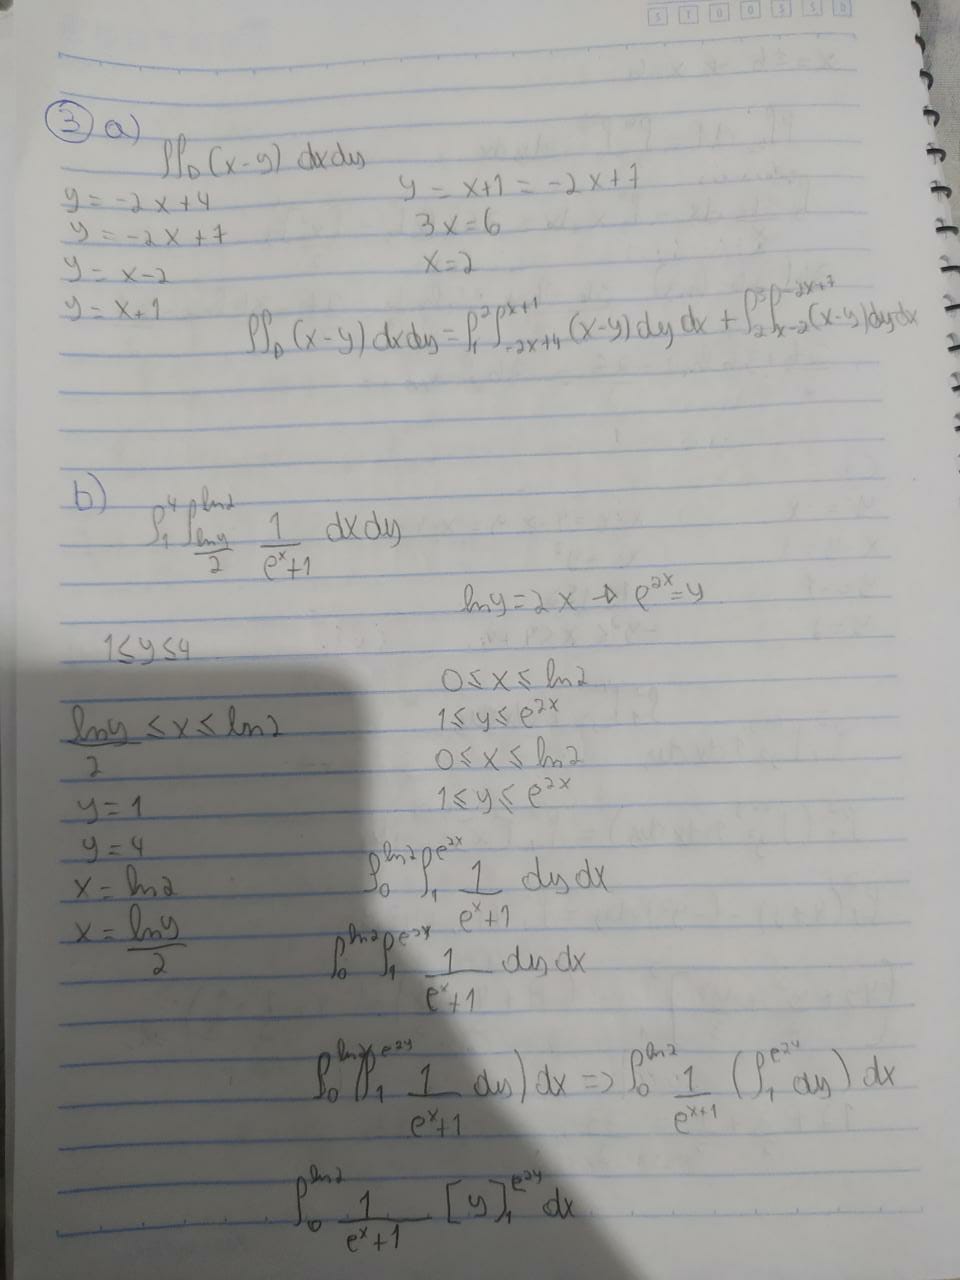 3) a)
∫∫_D (x-y) dxdy
y = -2x+4
y = -2x+7
y = x-2
y = x+1
y = x+1 = -2x+7
3x=6
x=2
∫∫_D (x-y) dxdy = ∫_1^2 ∫_{-2x+4}^{x+1} (x-y) dy dx + ∫_2^3 ∫_{x-2}^{-2x+7} (x-y) dy dx
b)
∫_1^4 ∫_{ln y/2}^{ln 2} 1/(e^x+1) dx dy
ln y = 2x → e^{2x} = y
1≤y≤4
ln y/2 ≤ x ≤ ln 2
y = 1
y = 4
x = ln 2
x = ln y/2
0 ≤ x ≤ ln 2
1 ≤ y ≤ e^{2x}
0 ≤ x ≤ ln 2
1 ≤ y ≤ e^{2x}
∫_0^{ln 2} ∫_1^{e^{2x}} 1/(e^x+1) dy dx
∫_0^{ln 2} ∫_1^{e^{2x}} 1/(e^x+1) dy dx
∫_0^{ln 2} (∫_1^{e^{2y}} 1/(e^x+1) dy) dx => ∫_0^{ln 2} 1/(e^{x+1}) (∫_1^{e^{2y}} dy) dx
∫_0^{ln 2} 1/(e^x+1) [y]_1^{e^{2y}} dx